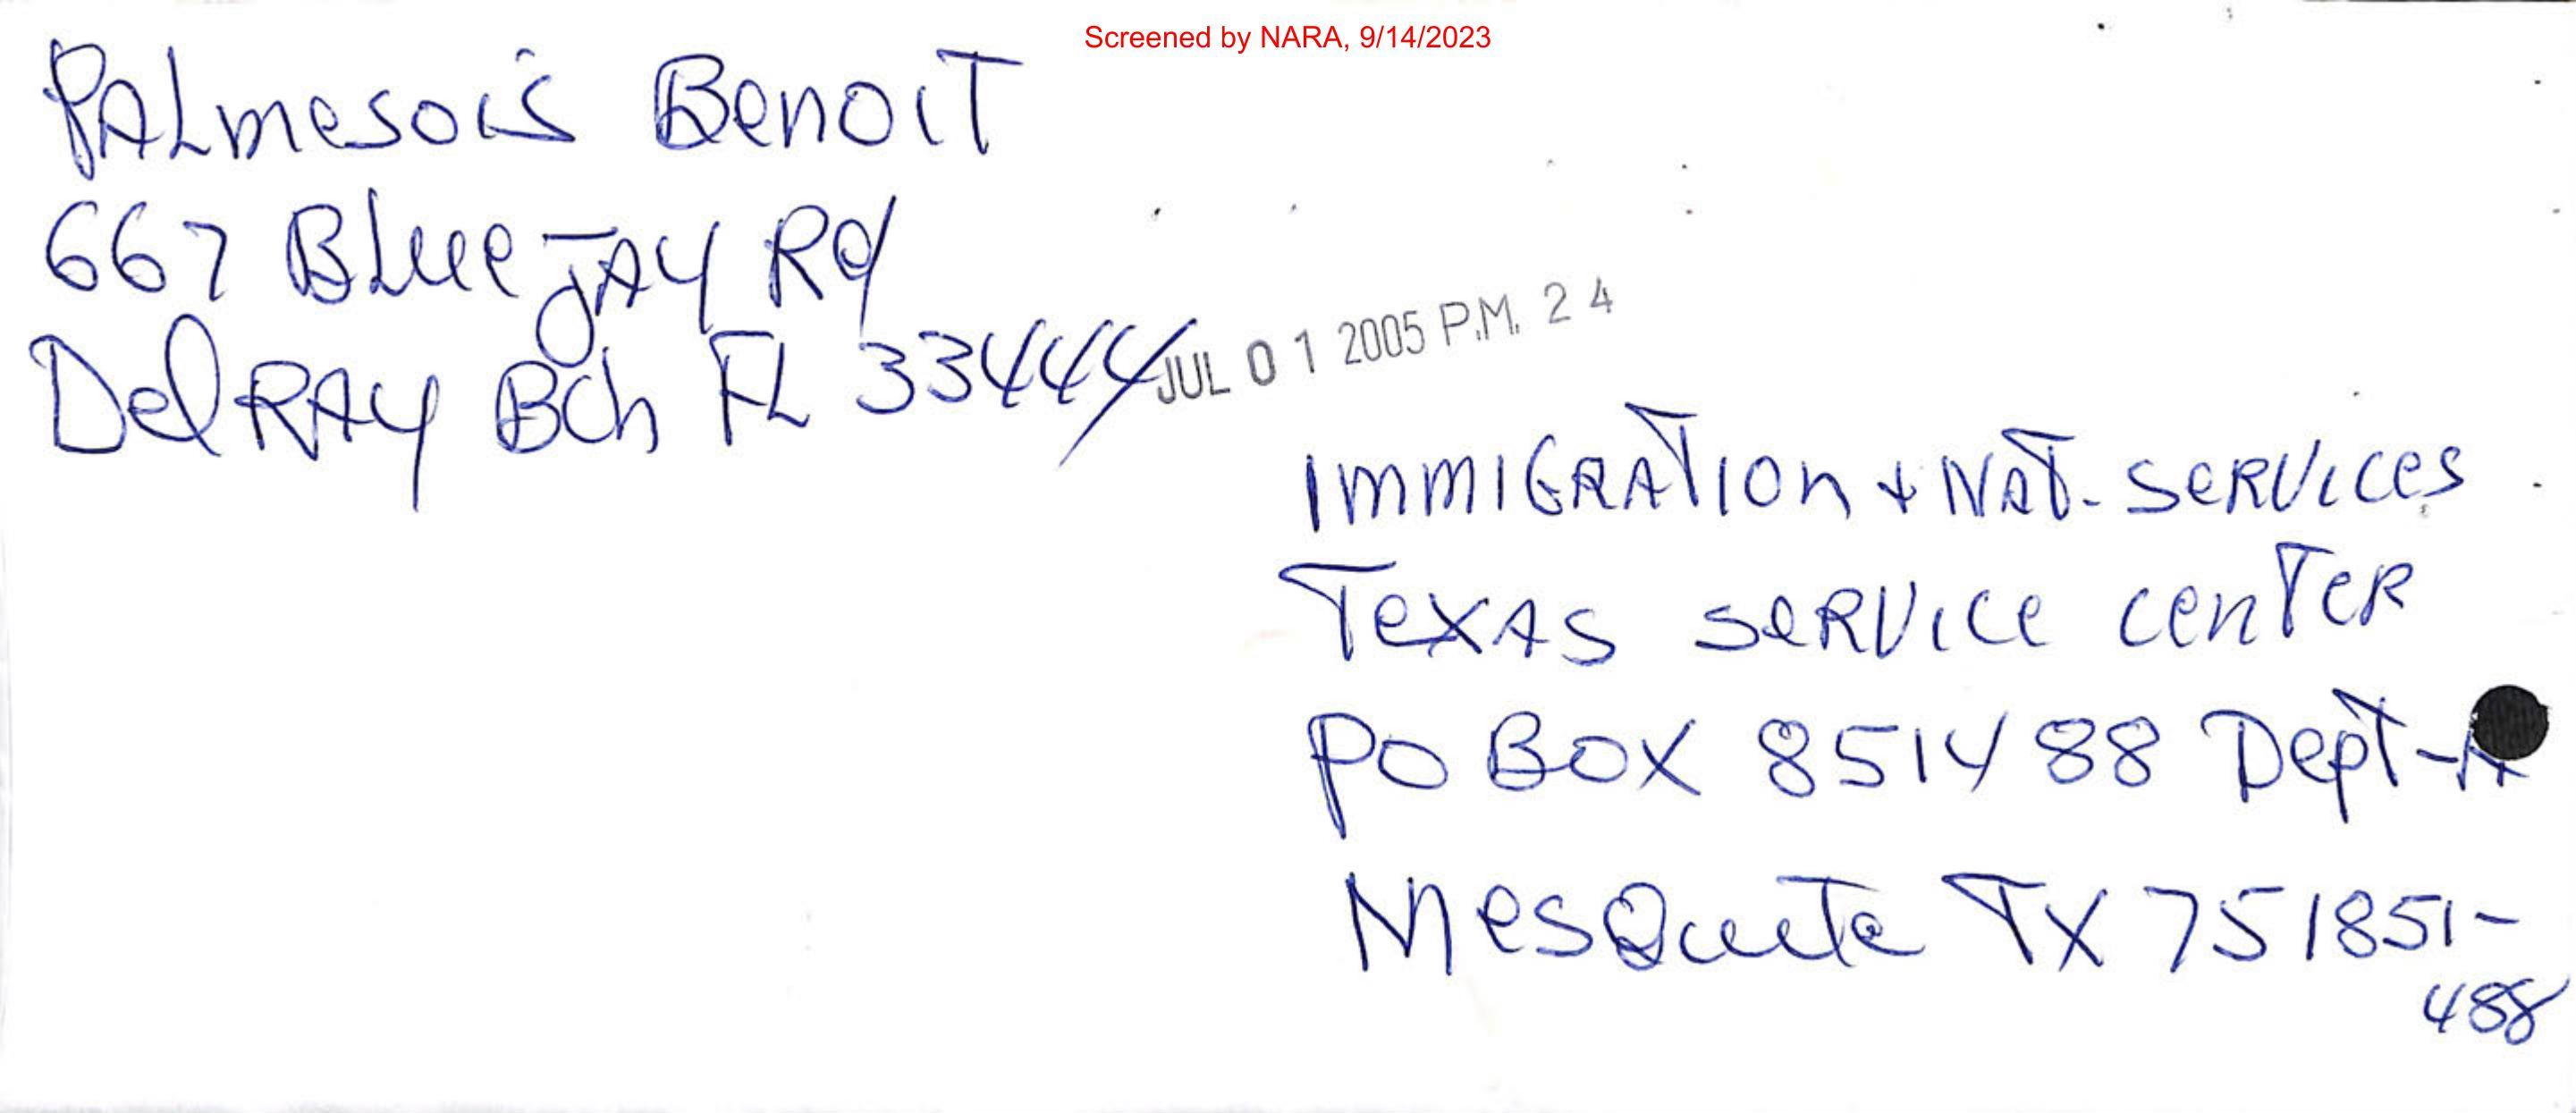 Screened by NARA, 9/14/2023
PALmesois BenoiT
667 BLue JAY Rd
DelRAY BCh FL 33444
JUL 01 2005 P.M. 24
IMMIGRATION + NAT. SeRVICes
TexAS seRVice cenTeR
PO BOX 851488 DepT-A
MesQuiTe TX 751851-
488